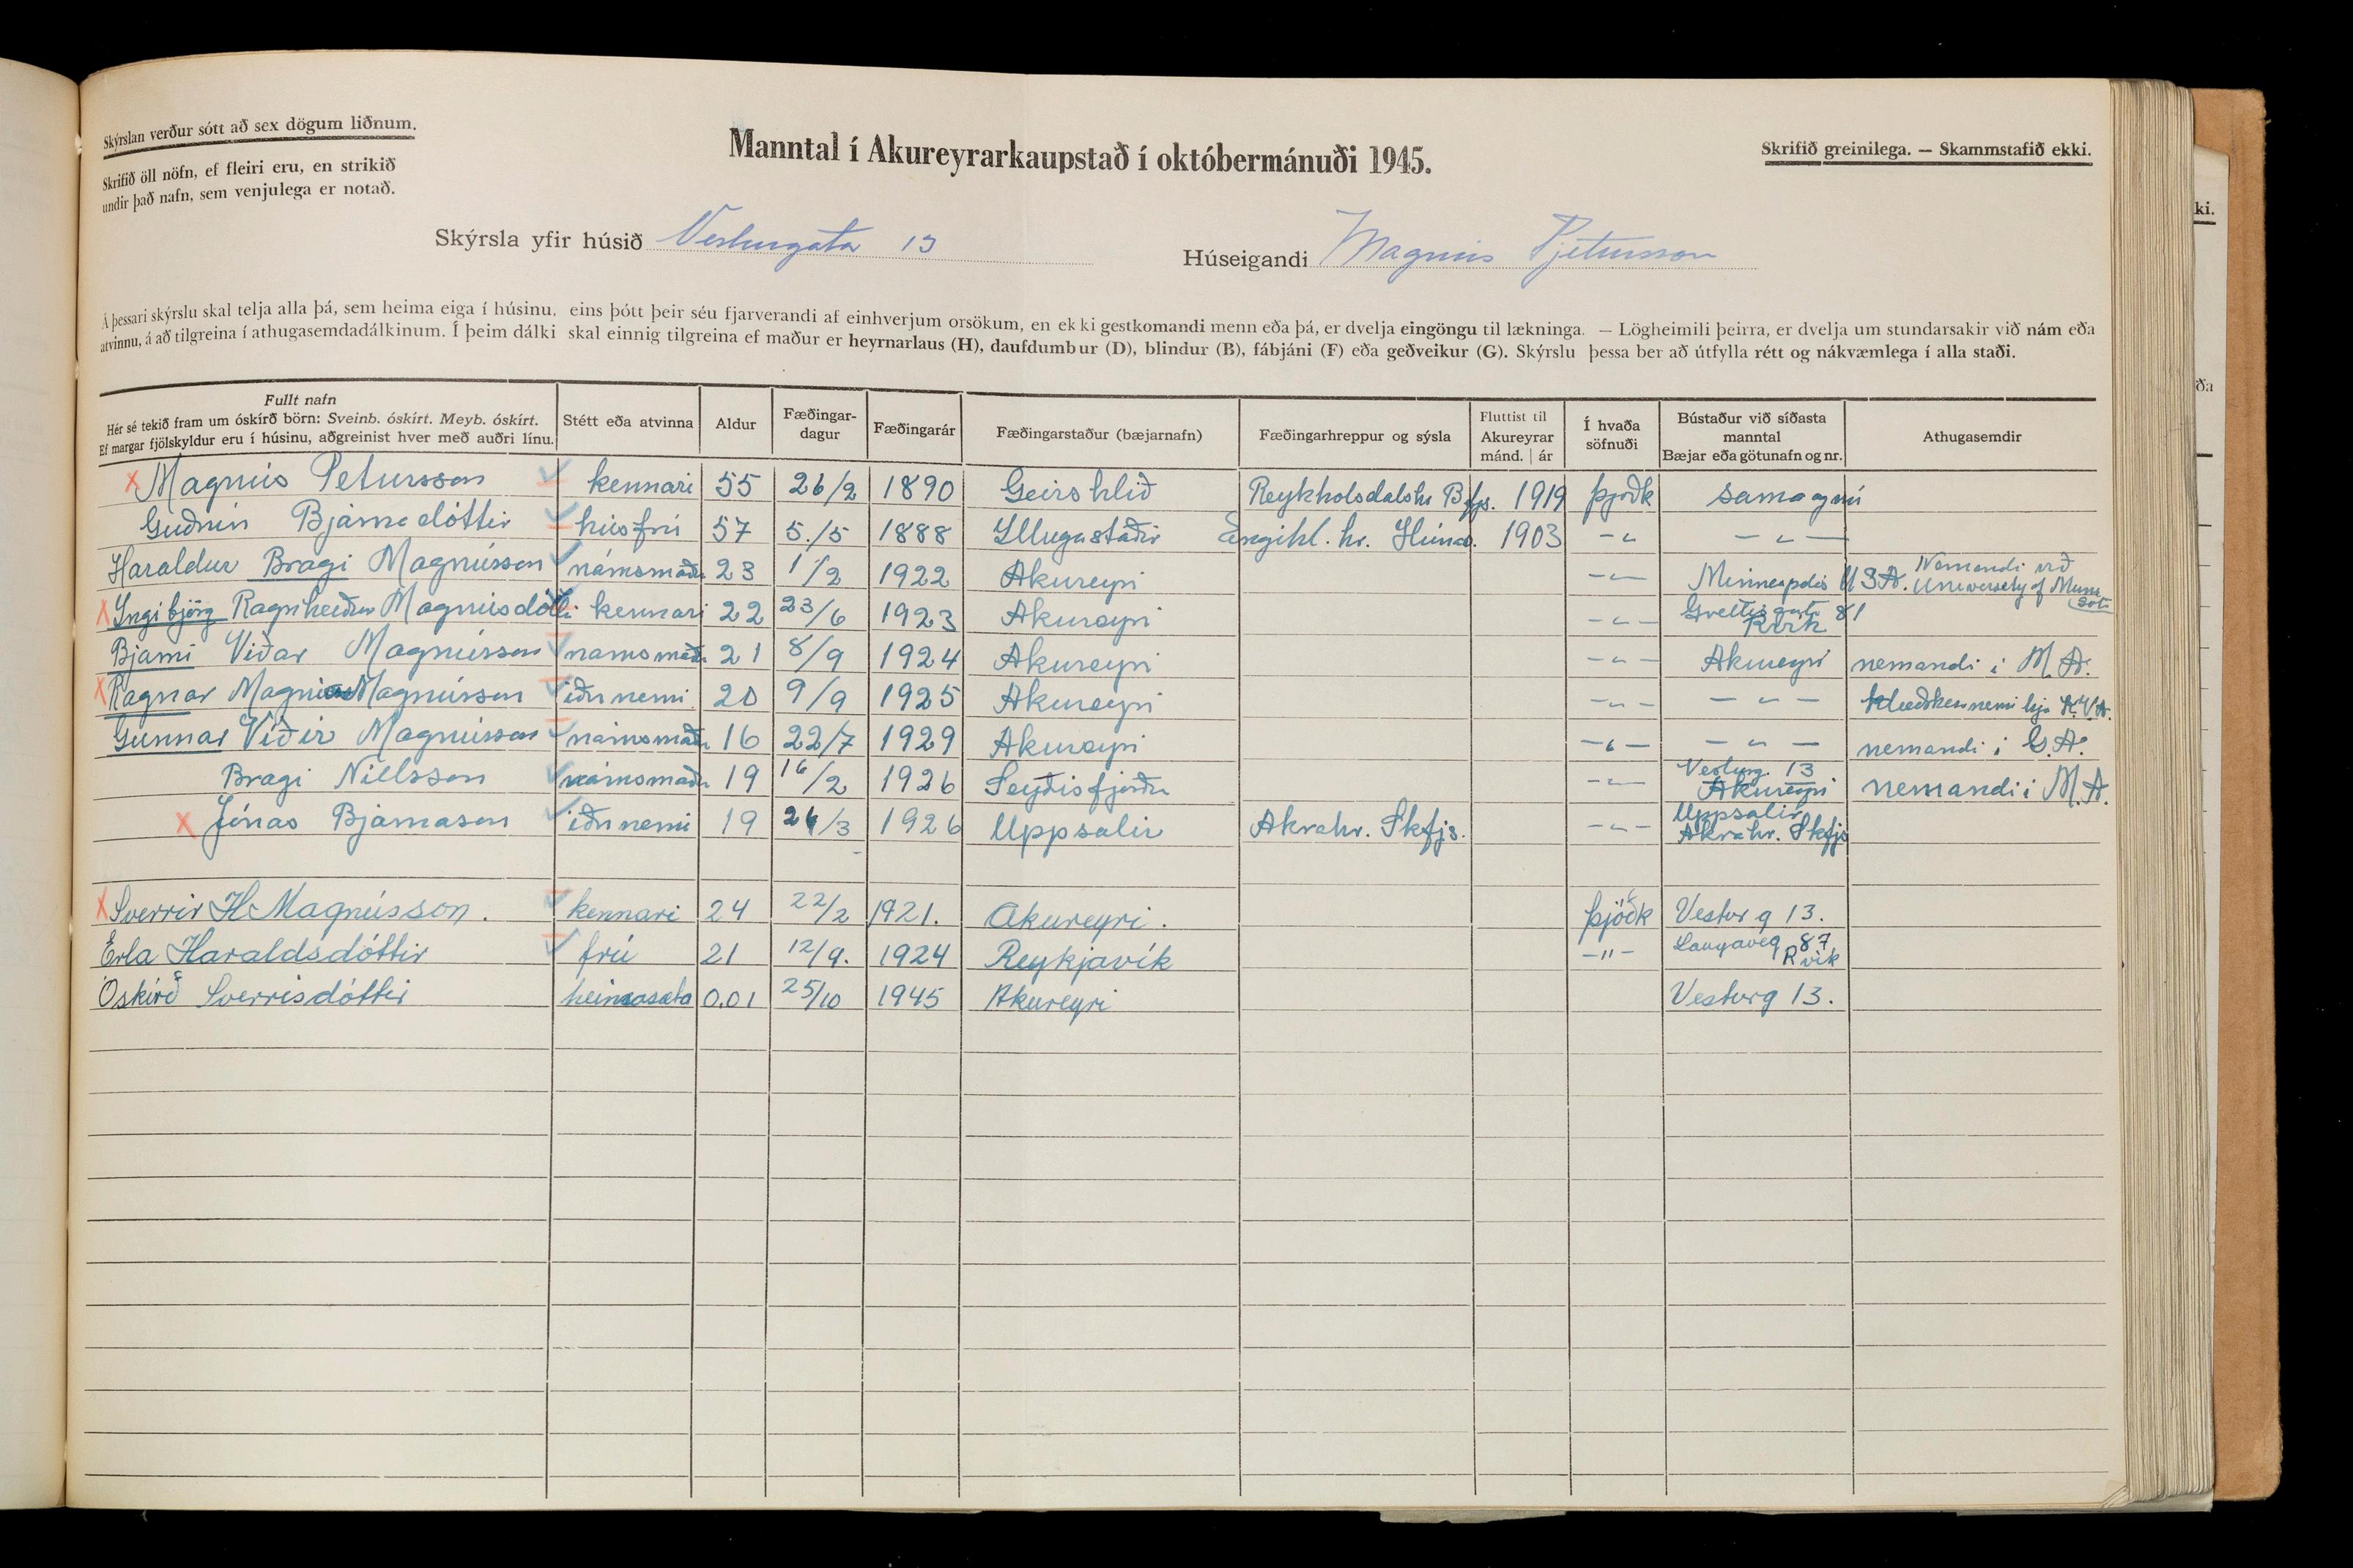 Skýrslan verður sótt að sex dögum liðnum.
Skrifið öll nöfn, ef fleiri eru, en strikið
undir það nafn, sem venjulega er notað.
Manntal í Akureyrarkaupstað í októbermánuði 1945.
Skrifið greinilega. — Skammstafið ekki.
Skýrsla yfir húsið Vesturgata 13
Húseigandi Magnús Pjetursson
Á þessari skýrslu skal telja alla þá, sem heima eiga í húsinu, eins þótt þeir séu fjarverandi af einhverjum orsökum, en ekki gestkomandi menn eða þá, er dvelja eingöngu til lækninga. — Lögheimili þeirra, er dvelja um stundarsakir við nám eða
atvinnu, á að tilgreina í athugasemdadálkinum. Í þeim dálki skal einnig tilgreina ef maður er heyrnarlaus (H), daufdumbur (D), blindur (B), fábjáni (F) eða geðveikur (G). Skýrslu þessa ber að útfylla rétt og nákvæmlega í alla staði.
Fullt nafn
Hér sé tekið fram um óskírð börn: Sveinb. óskírt. Meyb. óskírt.
Ef margar fjölskyldur eru í húsinu, aðgreinist hver með auðri línu.
Stétt eða atvinna
Aldur
Fæðingar-
dagur
Fæðingarár
Fæðingarstaður (bæjarnafn)
Fæðingarhreppur og sýsla
Fluttist til
Akureyrar
mánd. | ár
Í hvaða
söfnuði
Bústaður við síðasta
manntal
Bæjar eða götunafn og nr.
Athugasemdir
x Magnús Petursson kennari 55 26/2 1890 Geirshlið Reykholsdalshr Bfjs. 1919 þjóðk sama og nú
Guðrún Bjarnadóttir húsfrú 57 5./5 1888 Illugastaðir Engihl. hr. Húnas. 1903 -"- -"-
Haraldur Bragi Magnússon námsmaðr 23 1/2 1922 Akureyri -"- Minneapolis U.S.A. Nemandi við University of Minnesota
x Ingibjörg Ragnheiður Magnúsdóttir kennari 22 23/6 1923 Akureyri -"- Grettisgata 81 Rvík
Bjarni Viðar Magnússon namsmaðr 21 8/9 1924 Akureyri -"- Akureyri nemandi í M.A.
x Ragnar Magnús Magnússon iðnnemi 20 9/9 1925 Akureyri -"- -"- klæðskeranemi hjá K.V.A.
Gunnar Víðir Magnússon námsmaðr 16 22/7 1929 Akureyri -"- -"- nemandi í G.A.
Bragi Nielsson námsmaðr 19 16/2 1926 Seyðisfjörðr -"- Vesturg. 13 Akureyri nemandi í M.A.
x Jónas Bjarnason iðnnemi 19 26/3 1926 Uppsalir Akrahr. Skfjs. -"- Uppsalir, Akrahr. Skfjs
x Sverrir H Magnússon. kennari 24 22/2 1921. Akureyri. þjóðk Vesturg 13.
Erla Haraldsdóttir frú 21 12/9. 1924 Reykjavík -"- Laugaveg 87 Rvík
Óskírð Sverrisdóttir heimasæta 0.01 25/10 1945 Akureyri Vesturg 13.
ki.
ða